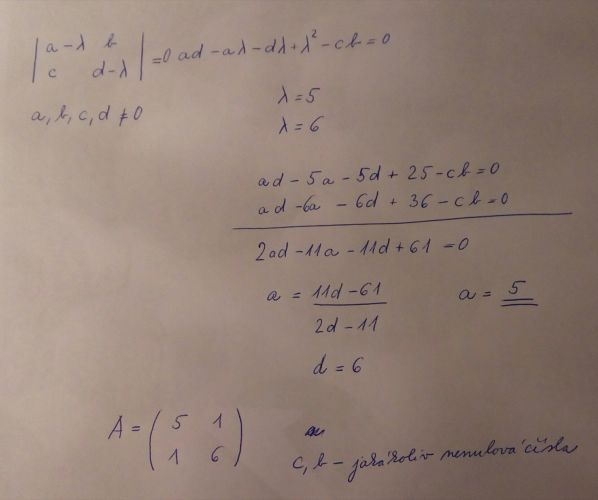 | a-λ b |
| c d-λ | =0 ad-aλ-dλ+λ²-cb=0
a,b,c,d ≠0
λ=5
λ=6
ad-5a-5d+25-cb=0
ad-6a-6d+36-cb=0
2ad-11a-11d+61=0
a = 11d-61 / 2d-11 a=5
d=6
A = ( 5 1
1 6 )
c, b - jakákoliv nenulová čísla